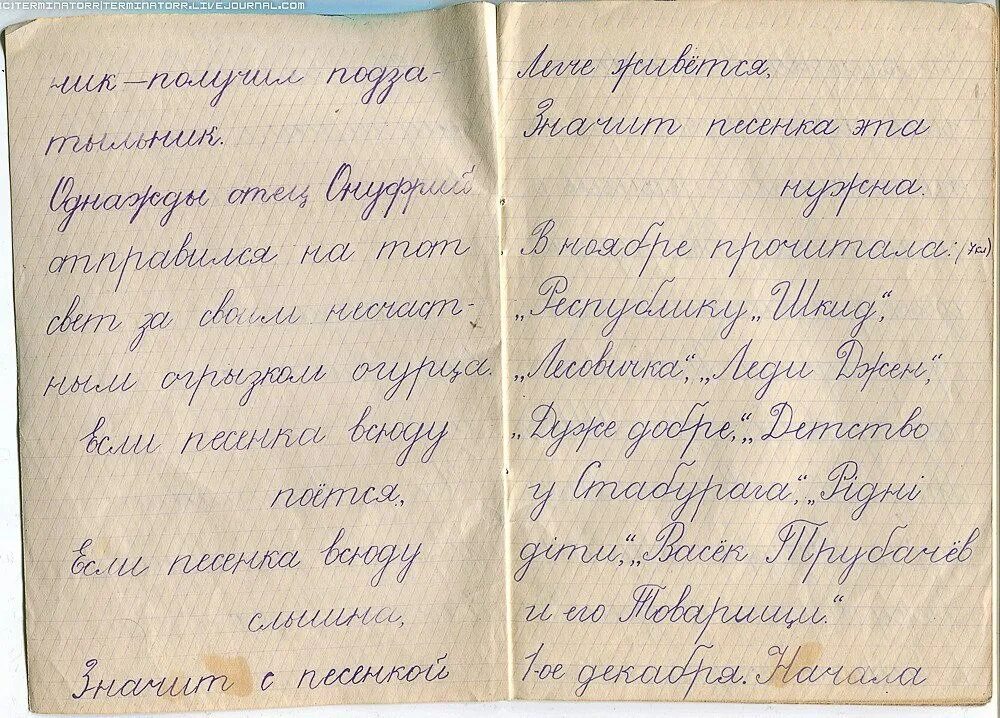 CITERMINATORR/TERMINATORR.LIVEJOURNAL.COM
чик – получил подза-
тыльник.
Однажды отец Онуфрий
отправился на тот
свет за своим несчаст-
ным огрызком огурца.
Если песенка всюду
поётся,
Если песенка всюду
слышна,
Значит с песенкой
Легче живётся,
Значит песенка эта
нужна.
В ноябре прочитала:
„Республику „Шкид“,
„Лесовичка“, „Леди Джен“,
„Дуже добре“, „Детство
у Стабурага“, „Рідні
діти“, „Васёк Трубачёв
и его Товарищи“.
1-ое декабря. Начала